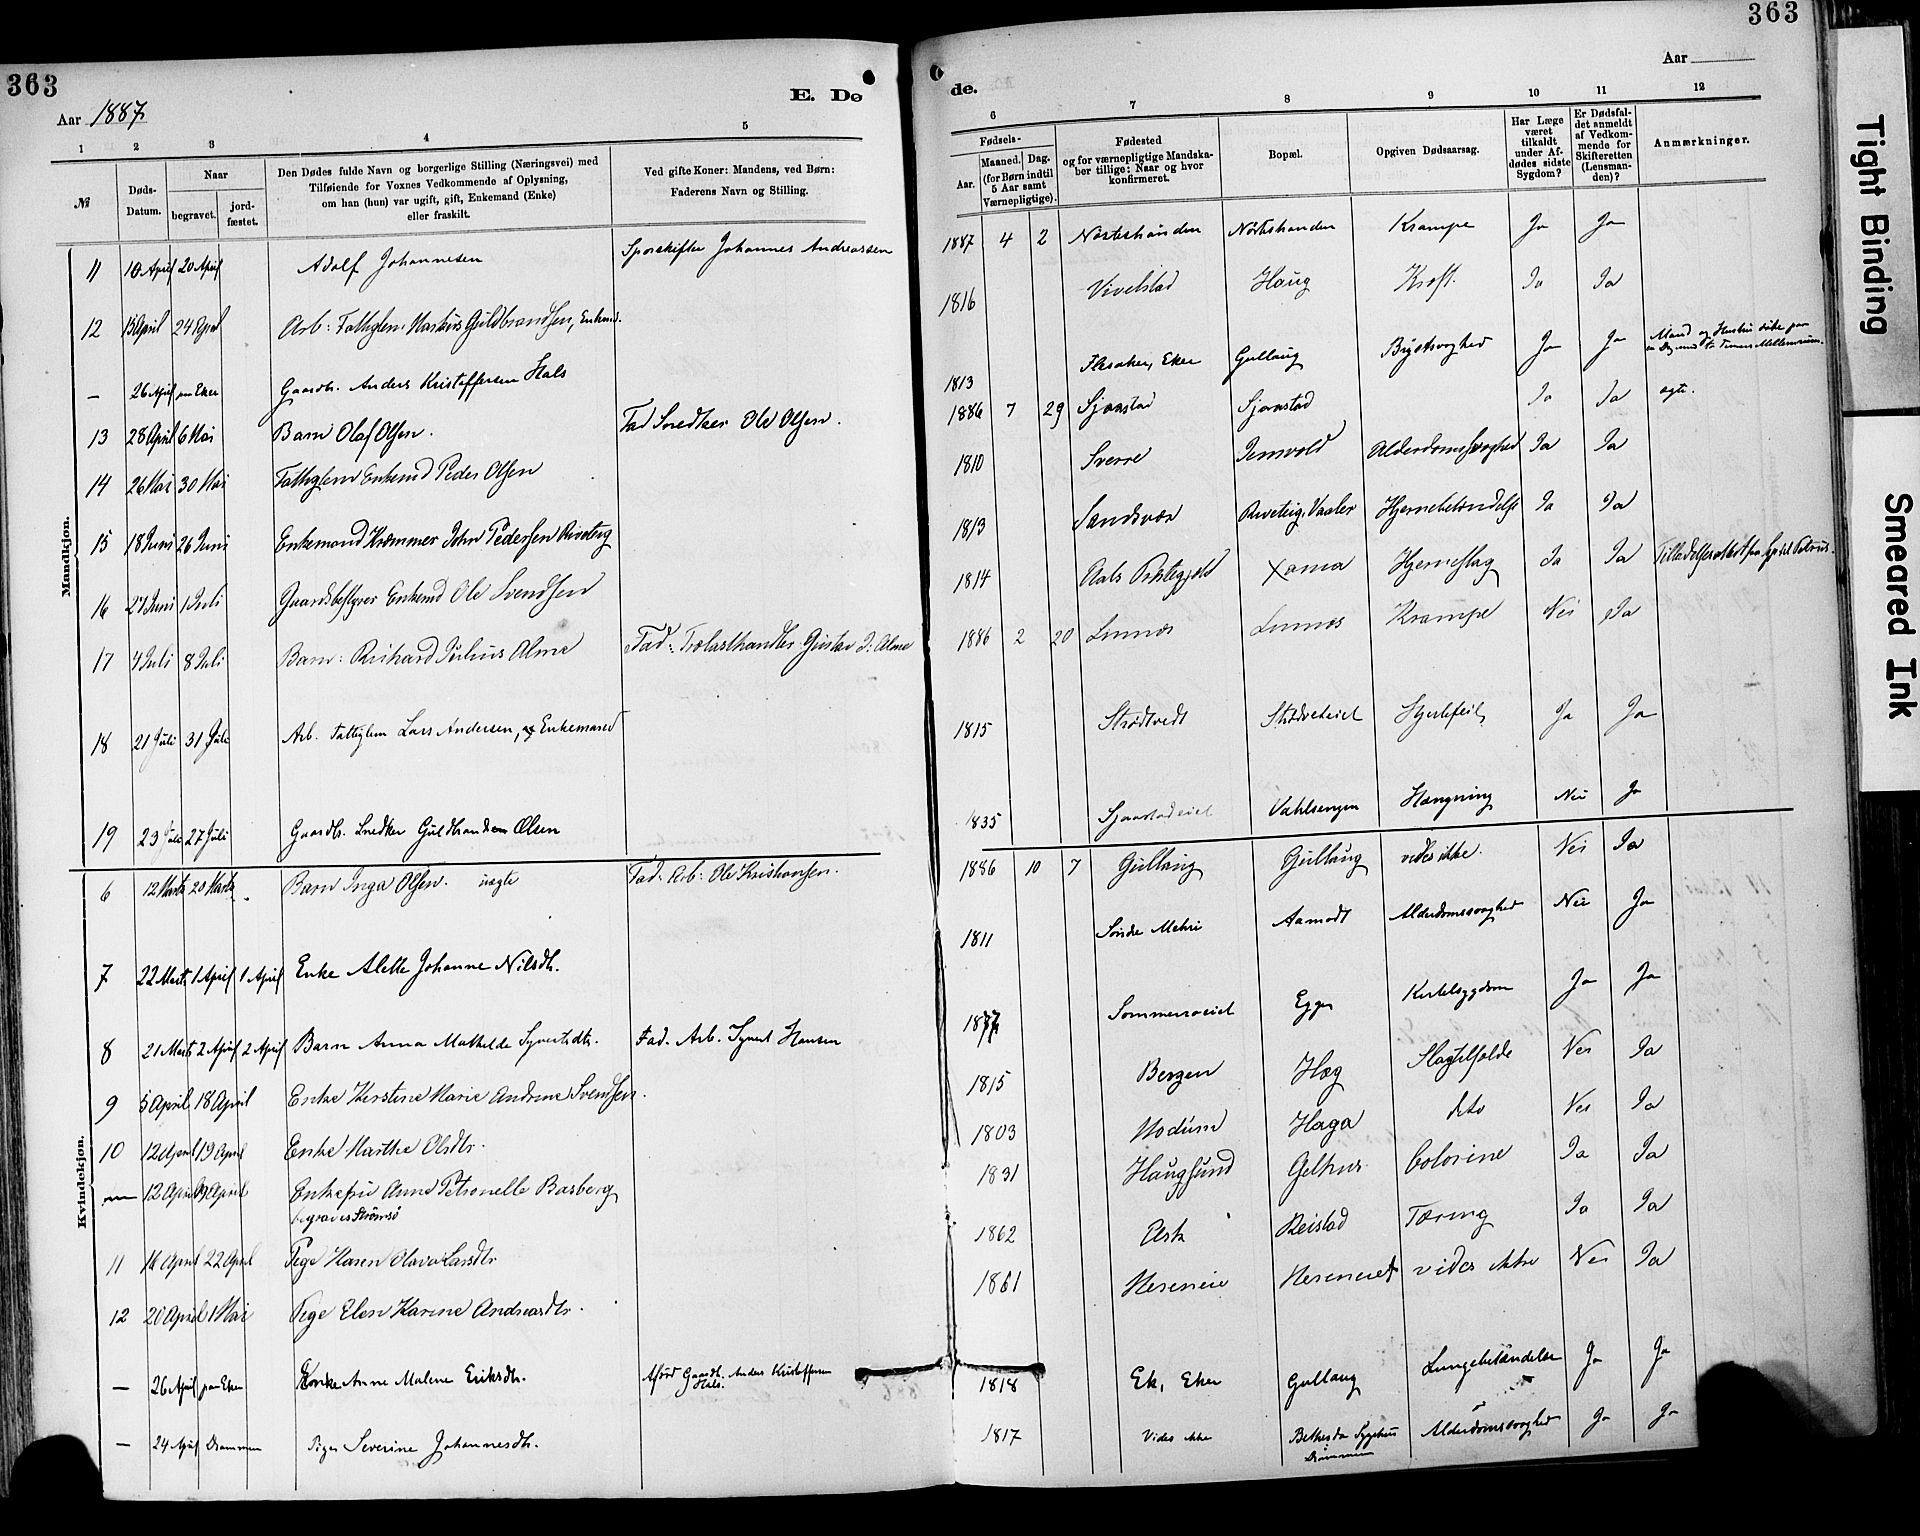 363
363
Aar 1887
E. Dø
de.
Aar
1 2 3 4 5
6 7 8 9 10 11 12
№
Døds-Datum.
Naar
begravet.
jordfæstet.
Den Dødes fulde Navn og borgerlige Stilling (Næringsvei) med
Tilføiende for Voxnes Vedkommende af Oplysning,
om han (hun) var ugift, gift, Enkemand (Enke)
eller fraskilt.
Ved gifte Koner: Mandens, ved Børn:
Faderens Navn og Stilling.
Fødsels-
Aar. Maaned. Dag.
(for Børn indtil
5 Aar samt
Værnepligtige).
Fødested
og for værnepligtige Mandskaber tillige: Naar og hvor
konfirmeret.
Bopæl.
Opgiven Dødsaarsag.
Har Læge
været
tilkaldt
under Afdødes sidste
Sygdom?
Er Dødsfaldet anmeldt
af Vedkommende for
Skifteretten
(Lensmanden)?
Anmærkninger.
Mandkjøn.
11 10 April 20 April Adolf Johannesen Sporskifter Johannes Andreassen 1887 4 2 Krampe Ja Ja
12 15 April 24 April Arb: Fattiglem Markus Guldbrandsen, Enkemd. 1816 Vivelstad Haug Kræft. Ja Ja
— 26 April paa Eker Gaardbr. Anders Kristoffersen Hals 1813 Eker Gullaug Brystsvaghed Ja Ja Mand og Hustru døde paa
13 28 April 6 Mai Barn Olaf Olsen. Fad Snedker Ole Olsen. 1886 7 29 Sjaastad Sjaastad Ja Ja ægte.
14 26 Mai 30 Mai Fattiglem Enkemd Peder Olsen 1810 Sverre Alderdomssvaghed Ja Ja
15 18 Juni 26 Juni Enkemand Kræmmer John Pedersen 1813 Sandsvær Hjernebetændelse Ja Ja
16 27 Juni 1 Juli Gaardsbestyrer Enkemd Ole Svendsen 1814 Aals Præstegjeld Hjerneslag Ja Ja
17 4 Juli 8 Juli Barn: Richard Julius Alme Fad: Trælasthandler Gustav J: Alme 1886 2 20 Linnes Linnes Krampe Nei Ja
18 21 Juli 31 Juli Arb. Fattiglem Lars Andersen, Enkemand 1815 Strødtvedt Hjertefeil Ja Ja
19 23 Juli 27 Juli Gaardbr. Snedker Guldbrandsen Olsen 1835 Sjaastadeiet Vahlsengen Hængning Nei Ja
Kvindekjøn.
6 12 Marts 20 Marts Barn Inga Olsen. uægte Fad. Arb: Ole Kristiansen. 1886 10 7 Gullaug Gullaug vides ikke. Nei Ja
7 22 Marts 1 April 1 April Enke Alette Johanne Nilsdtr. 1811 Aamodt Alderdomssvaghed Nei Ja
8 21 Marts 2 April 2 April Barn Anna Mathilde Syvertsdtr. Fad. Arb. Syvert Hansen 1877 Egge Kirtelsygdom Ja Ja
9 5 April 18 April Enke Kirstine Marie Andrine Svendsen. 1815 Bergen Høg Slagtilfælde Nei Ja
10 12 April 19 April Enke Marthe Olsdtr. 1803 Modum Haga dito Nei Ja
— 12 April 19 April Enkefru Anne Petronelle Basberg 1831 Haugsund Gelhus Colorine Ja Ja
begraves Strømsø
11 16 April 22 April Pige Karen Olava Larsdtr 1862 Ask Reistad Tæring Ja Ja
12 20 April 1 Mai Pige Elen Karine Andreasdtr. 1861 Nereneie Nereneiet vides ikke Nei Ja
— 26 April paa Eker Anne Malene Eriksdtr. Afdød Gaardb. Anders Kristoffersen 1818 Ek, Eker Gullaug Lungebetændelse Ja Ja
Hals.
— 24 April Drammen Pige Severine Johannesdtr. 1817 Vides ikke Bethesda Sygehus Alderdomssvaghed Ja Ja
Drammen
Tight Binding
Smeared Ink